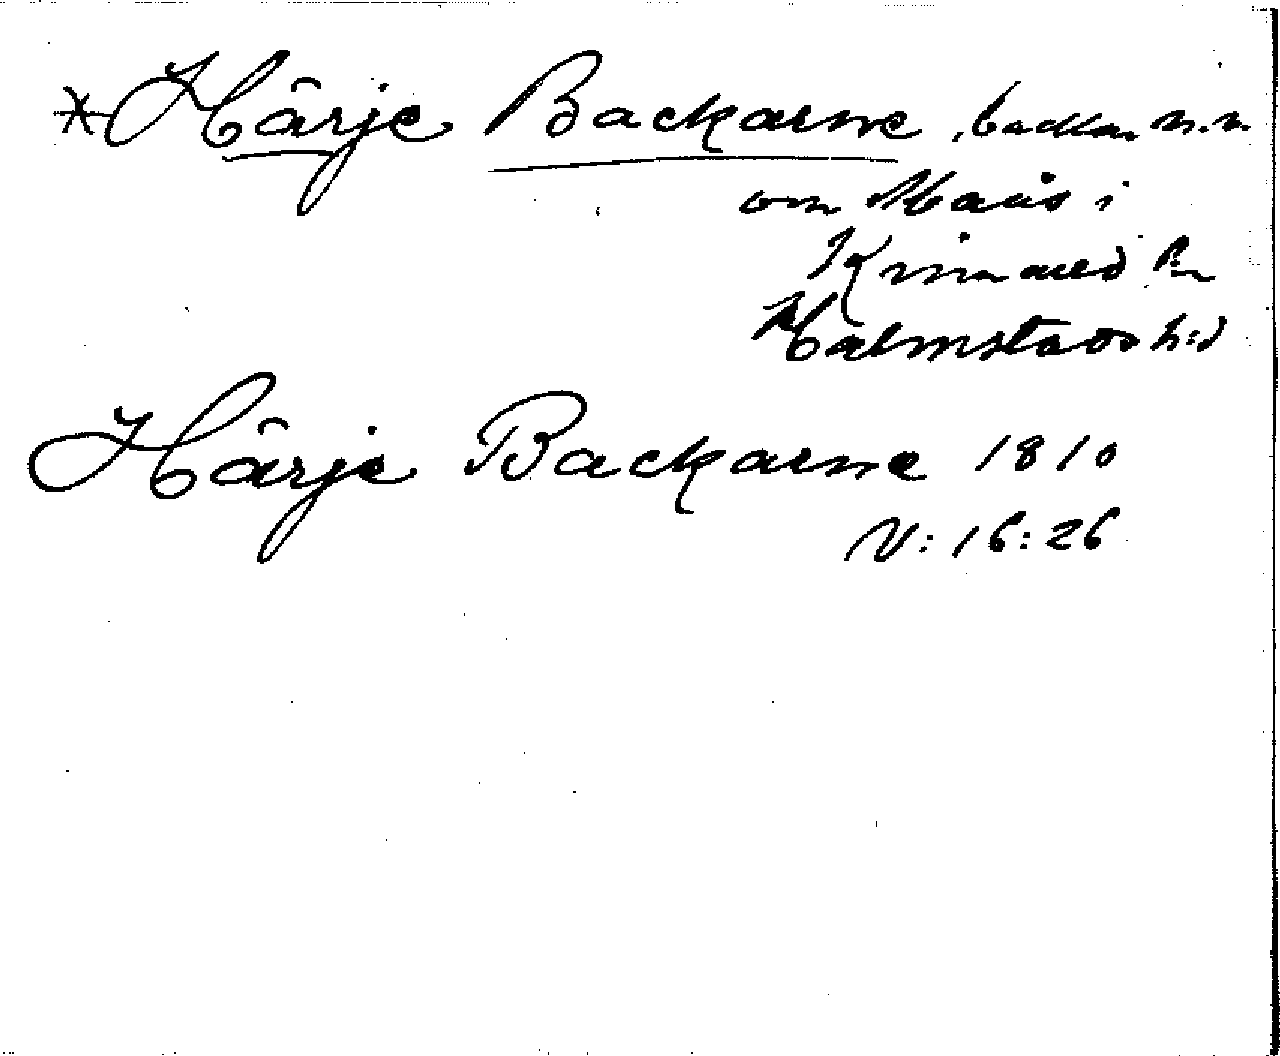 * Hârje Backarne, backar n.v.
om Maås i
Kvinnared sn
Halmstads h:d
Hârje Backarne 1810
V: 16: 26